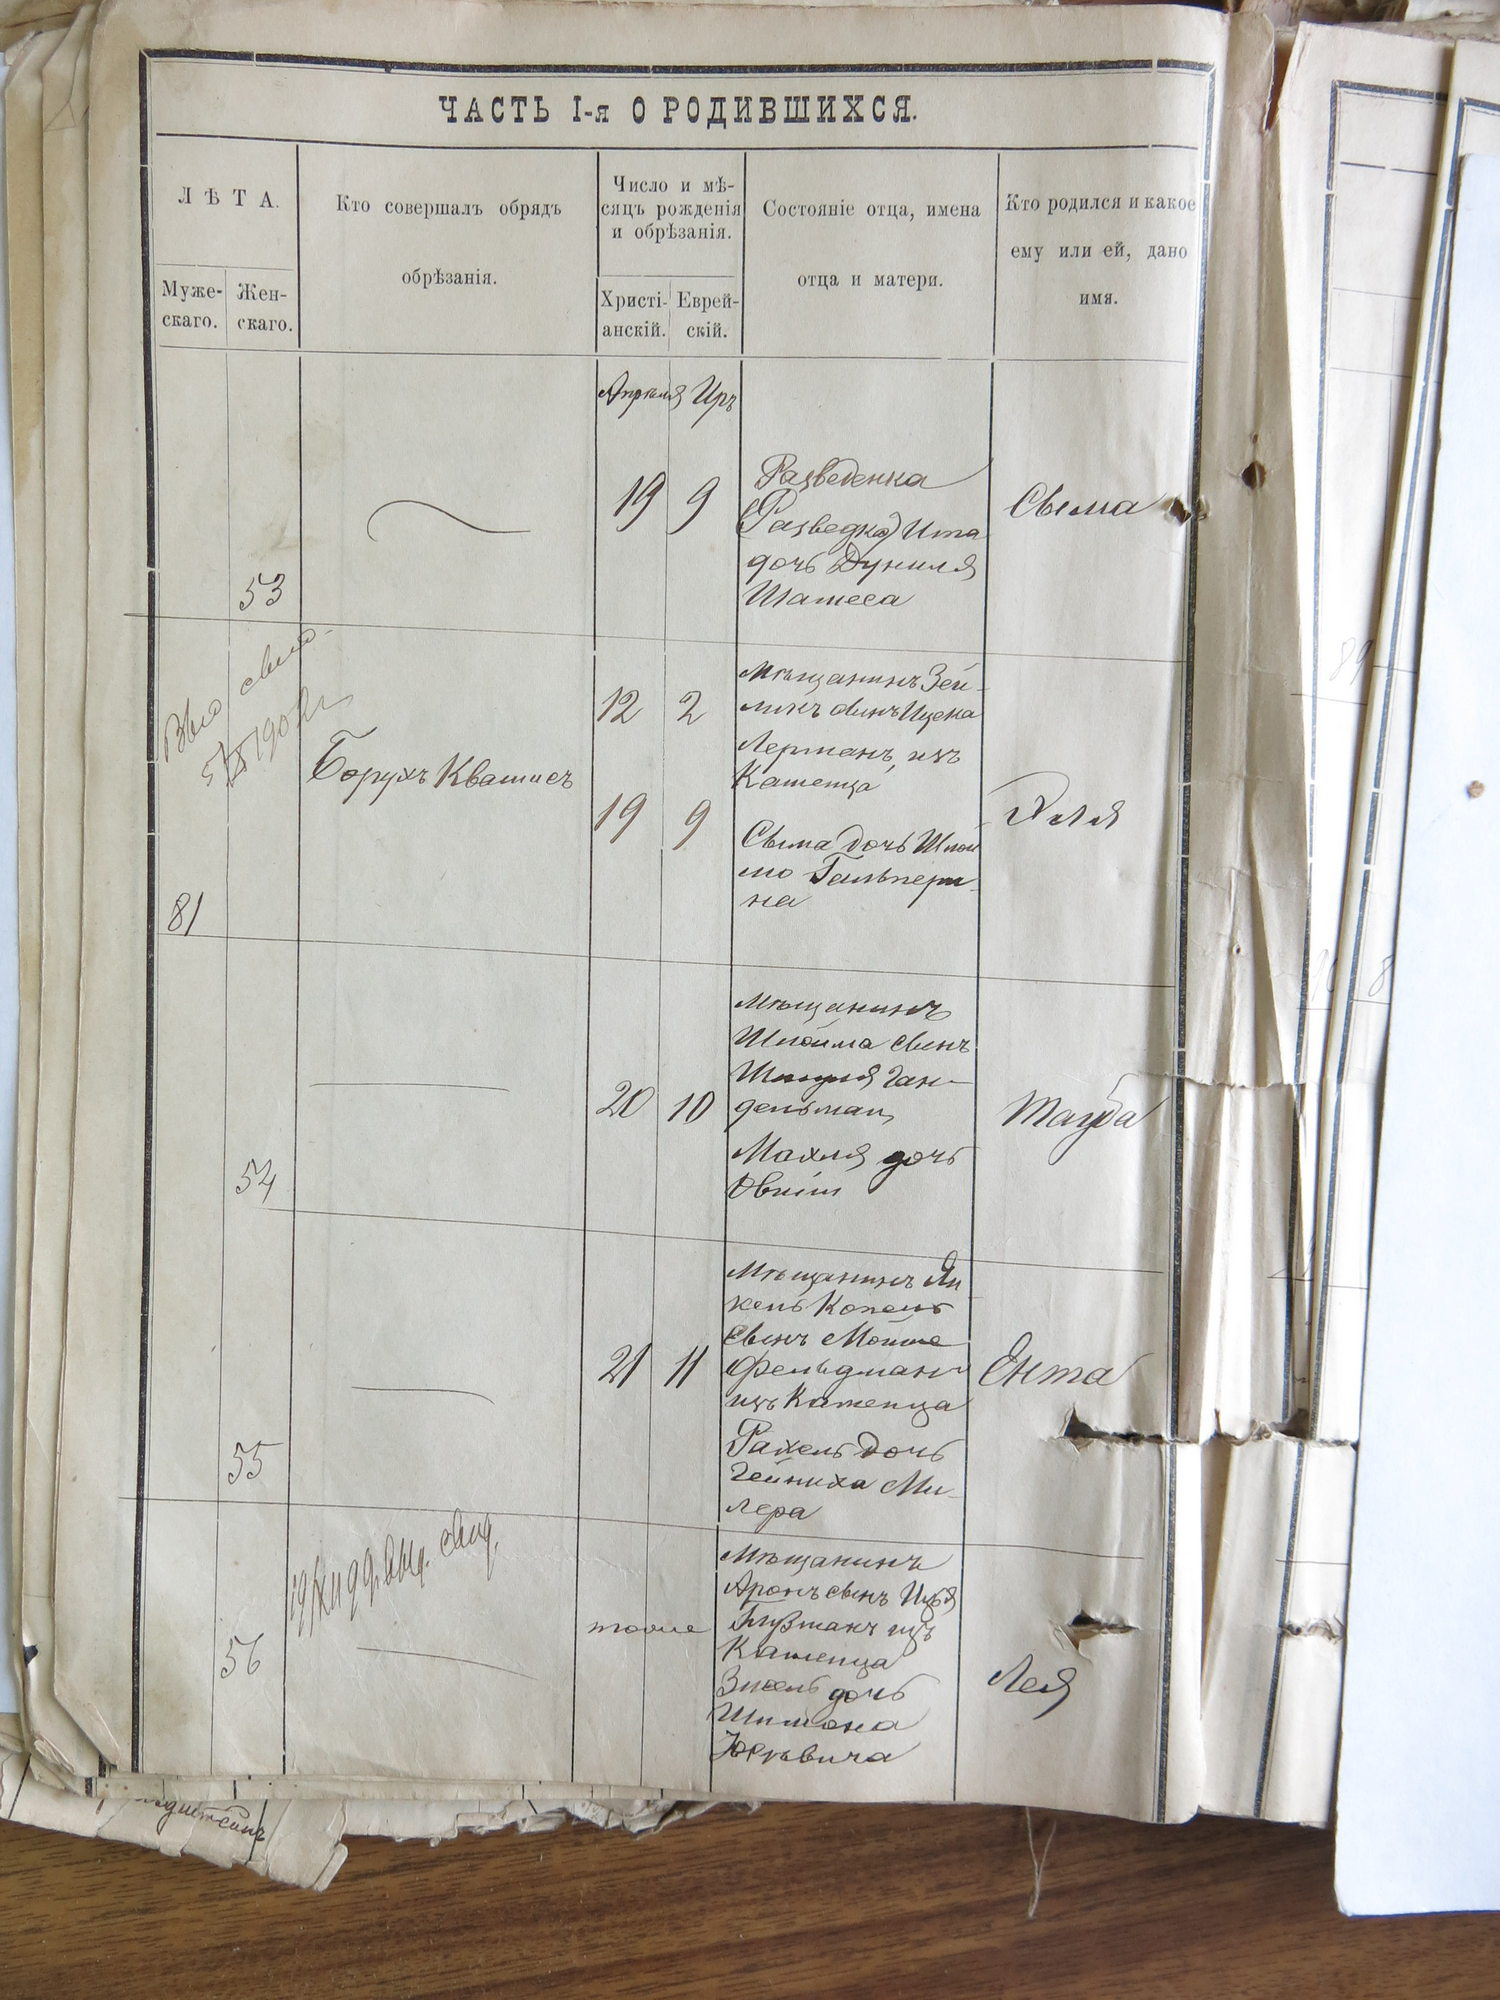 ЧАСТЬ I-я О РОДИВШИХСЯ.
ЛѢТА.
Муже-
скаго.
Жен-
скаго.
Кто совершалъ обрядъ
обрѣзанія.
Число и мѣ-
сяцъ рожденія
и обрѣзанія.
Христі-
анскій.
Еврей-
скій.
Состояніе отца, имена
отца и матери.
Кто родился и какое
ему или ей, дано
имя.
Апрѣля Иръ
53
19 9
Разведенка
(Разведка) Ита
дочь Дуниля
Шатеса
Сыма
81
Борухъ Квашисъ
12 2
19 9
Мѣщанинъ Зей-
ликъ сынъ Ицека
Лерманъ, изъ
Каменца
Сыма дочь Шлой
мо Гальпери-
на
Эля
54
20 10
Мѣщанинъ
Шлойма сынъ
Шмуля Ган-
дельман,
Махля дочь
Тауба
55
21 11
Мѣщанинъ Ян
кель Копель
сынъ Мойше
Фельдманъ
изъ Каменца
Рахель дочь
Гейниха Ми-
лера
Ента
56
тоже
Мѣщанинъ
Аронъ сынъ
изъ
Каменца
дочь
Шимона
Юрьвича
Лея